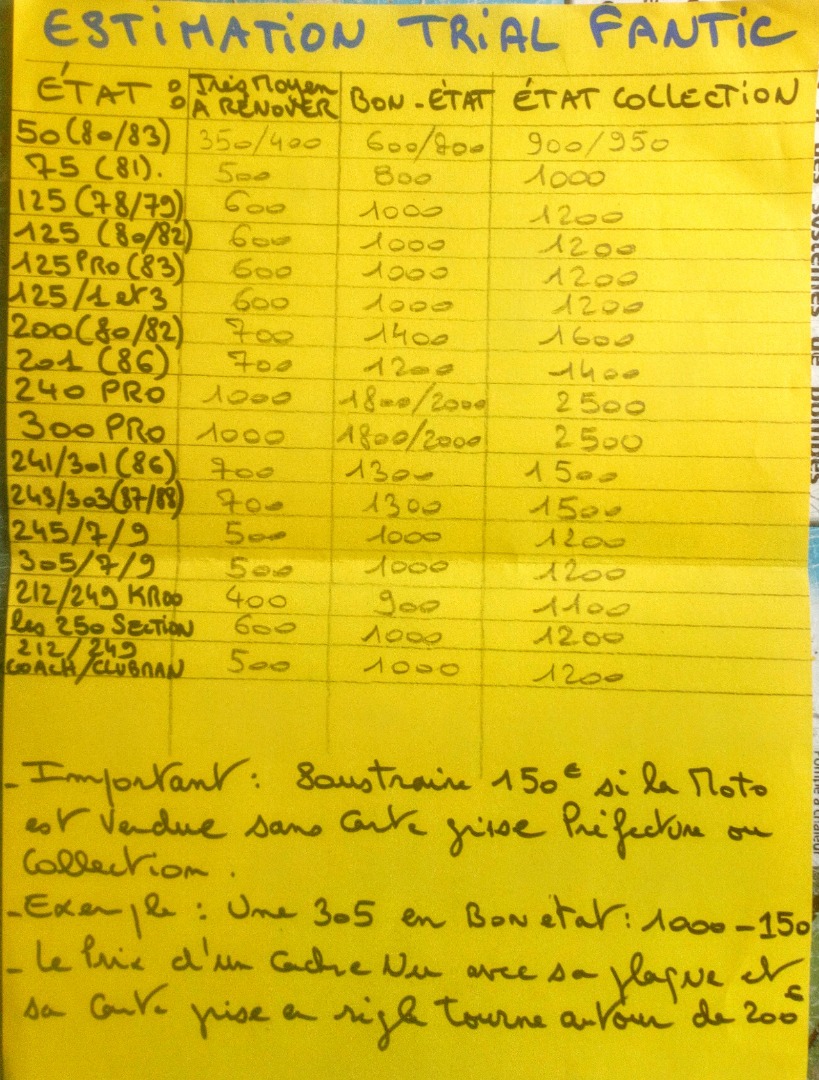 ESTIMATION TRIAL FANTIC
ÉTAT : Très Moyen A RENOVER BON-ÉTAT ÉTAT COLLECTION
50 (80/83) 350/400 600/700 900/950
75 (81). 500 800 1000
125 (78/79) 600 1000 1200
125 (80/82) 600 1000 1200
125 PRO (83) 600 1000 1200
125/1 et 3 600 1000 1200
200 (80/82) 700 1400 1600
201 (86) 700 1200 1400
240 PRO 1000 1800/2000 2500
300 PRO 1000 1800/2000 2500
241/301 (86) 700 1300 1500
243/303 (87/88) 700 1300 1500
245/7/9 500 1000 1200
305/7/9 500 1000 1200
212/249 KROO 400 900 1100
les 250 SECTION 600 1000 1200
212/249 COACH/CLUBMAN 500 1000 1200
- Important : Soustraire 150€ si la Moto
est vendue sans carte grise Préfecture ou
Collection.
- Exemple : Une 305 en Bon état : 1000 - 150
- Le Prix d'un cadre Nu avec sa plaque et
sa carte grise en règle tourne autour de 200€